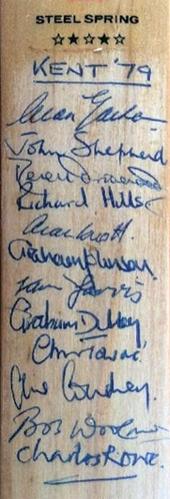 STEEL SPRING
KENT '79
Alan Ealham
John Shepherd
Derek Underwood
Richard Hills
Alan Knott
Graham Johnson
Kevin Jarvis
Graham Dilley
Chris Tavaré
Chris Cowdrey
Bob Woolmer
Charles Rowe